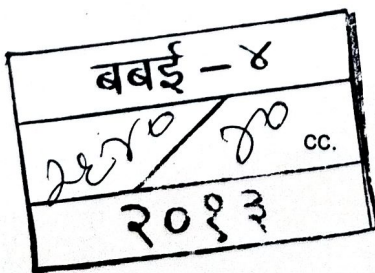 बबई - ४
२६४० / ४० cc.
२०१३